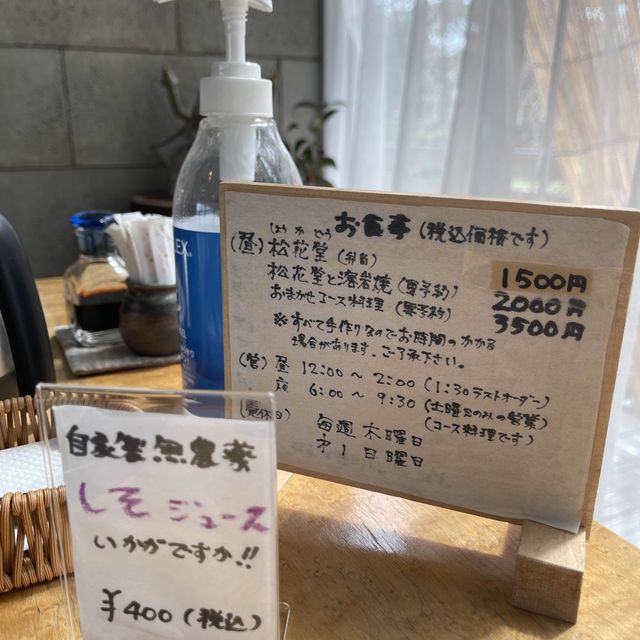 お食事(税込価格です)
しょうかどう
(昼)松花堂(弁当) 1500円
松花堂と溶岩焼(要予約) 2000円
おまかせコース料理(要予約) 3500円
※すべて手作りなのでお時間のかかる
場合があります。ご了承下さい。
(営)昼 12:00~2:00(1:30ラストオーダー)
夜 6:00~9:30(土曜日のみの営業)
(コース料理です)
定休日) 毎週木曜日
第1日曜日
自家製無農薬
しそジュース
いかがですか!!
¥400(税込)